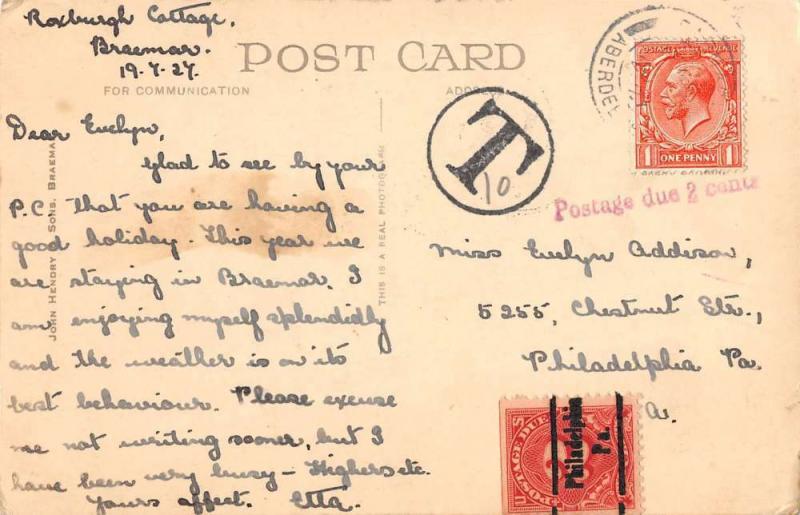 Roxburgh Cottage,
Braemar.
19.7.27.
POST CARD
FOR COMMUNICATION
ADDRESS
Dear Evelyn,
Glad to see by your
P.C. that you are having a
good holiday. This year we
are staying in Braemar. I
am enjoying myself splendidly
and the weather is on its
best behaviour. Please excuse
me not writing sooner, but I
have been very busy – Highers etc.
Yours affect. Etta.
JOHN HENDRY & SONS, BRAEMAR
THIS IS A REAL PHOTOGRAPH
T
10
ABERDEE
POSTAGE REVENUE
1 ONE PENNY 1
Postage due 2 cents
Miss Evelyn Addison,
5255, Chestnut Str.,
Philadelphia Pa.
A.
POSTAGE DUE
Philadelphia
Pa.